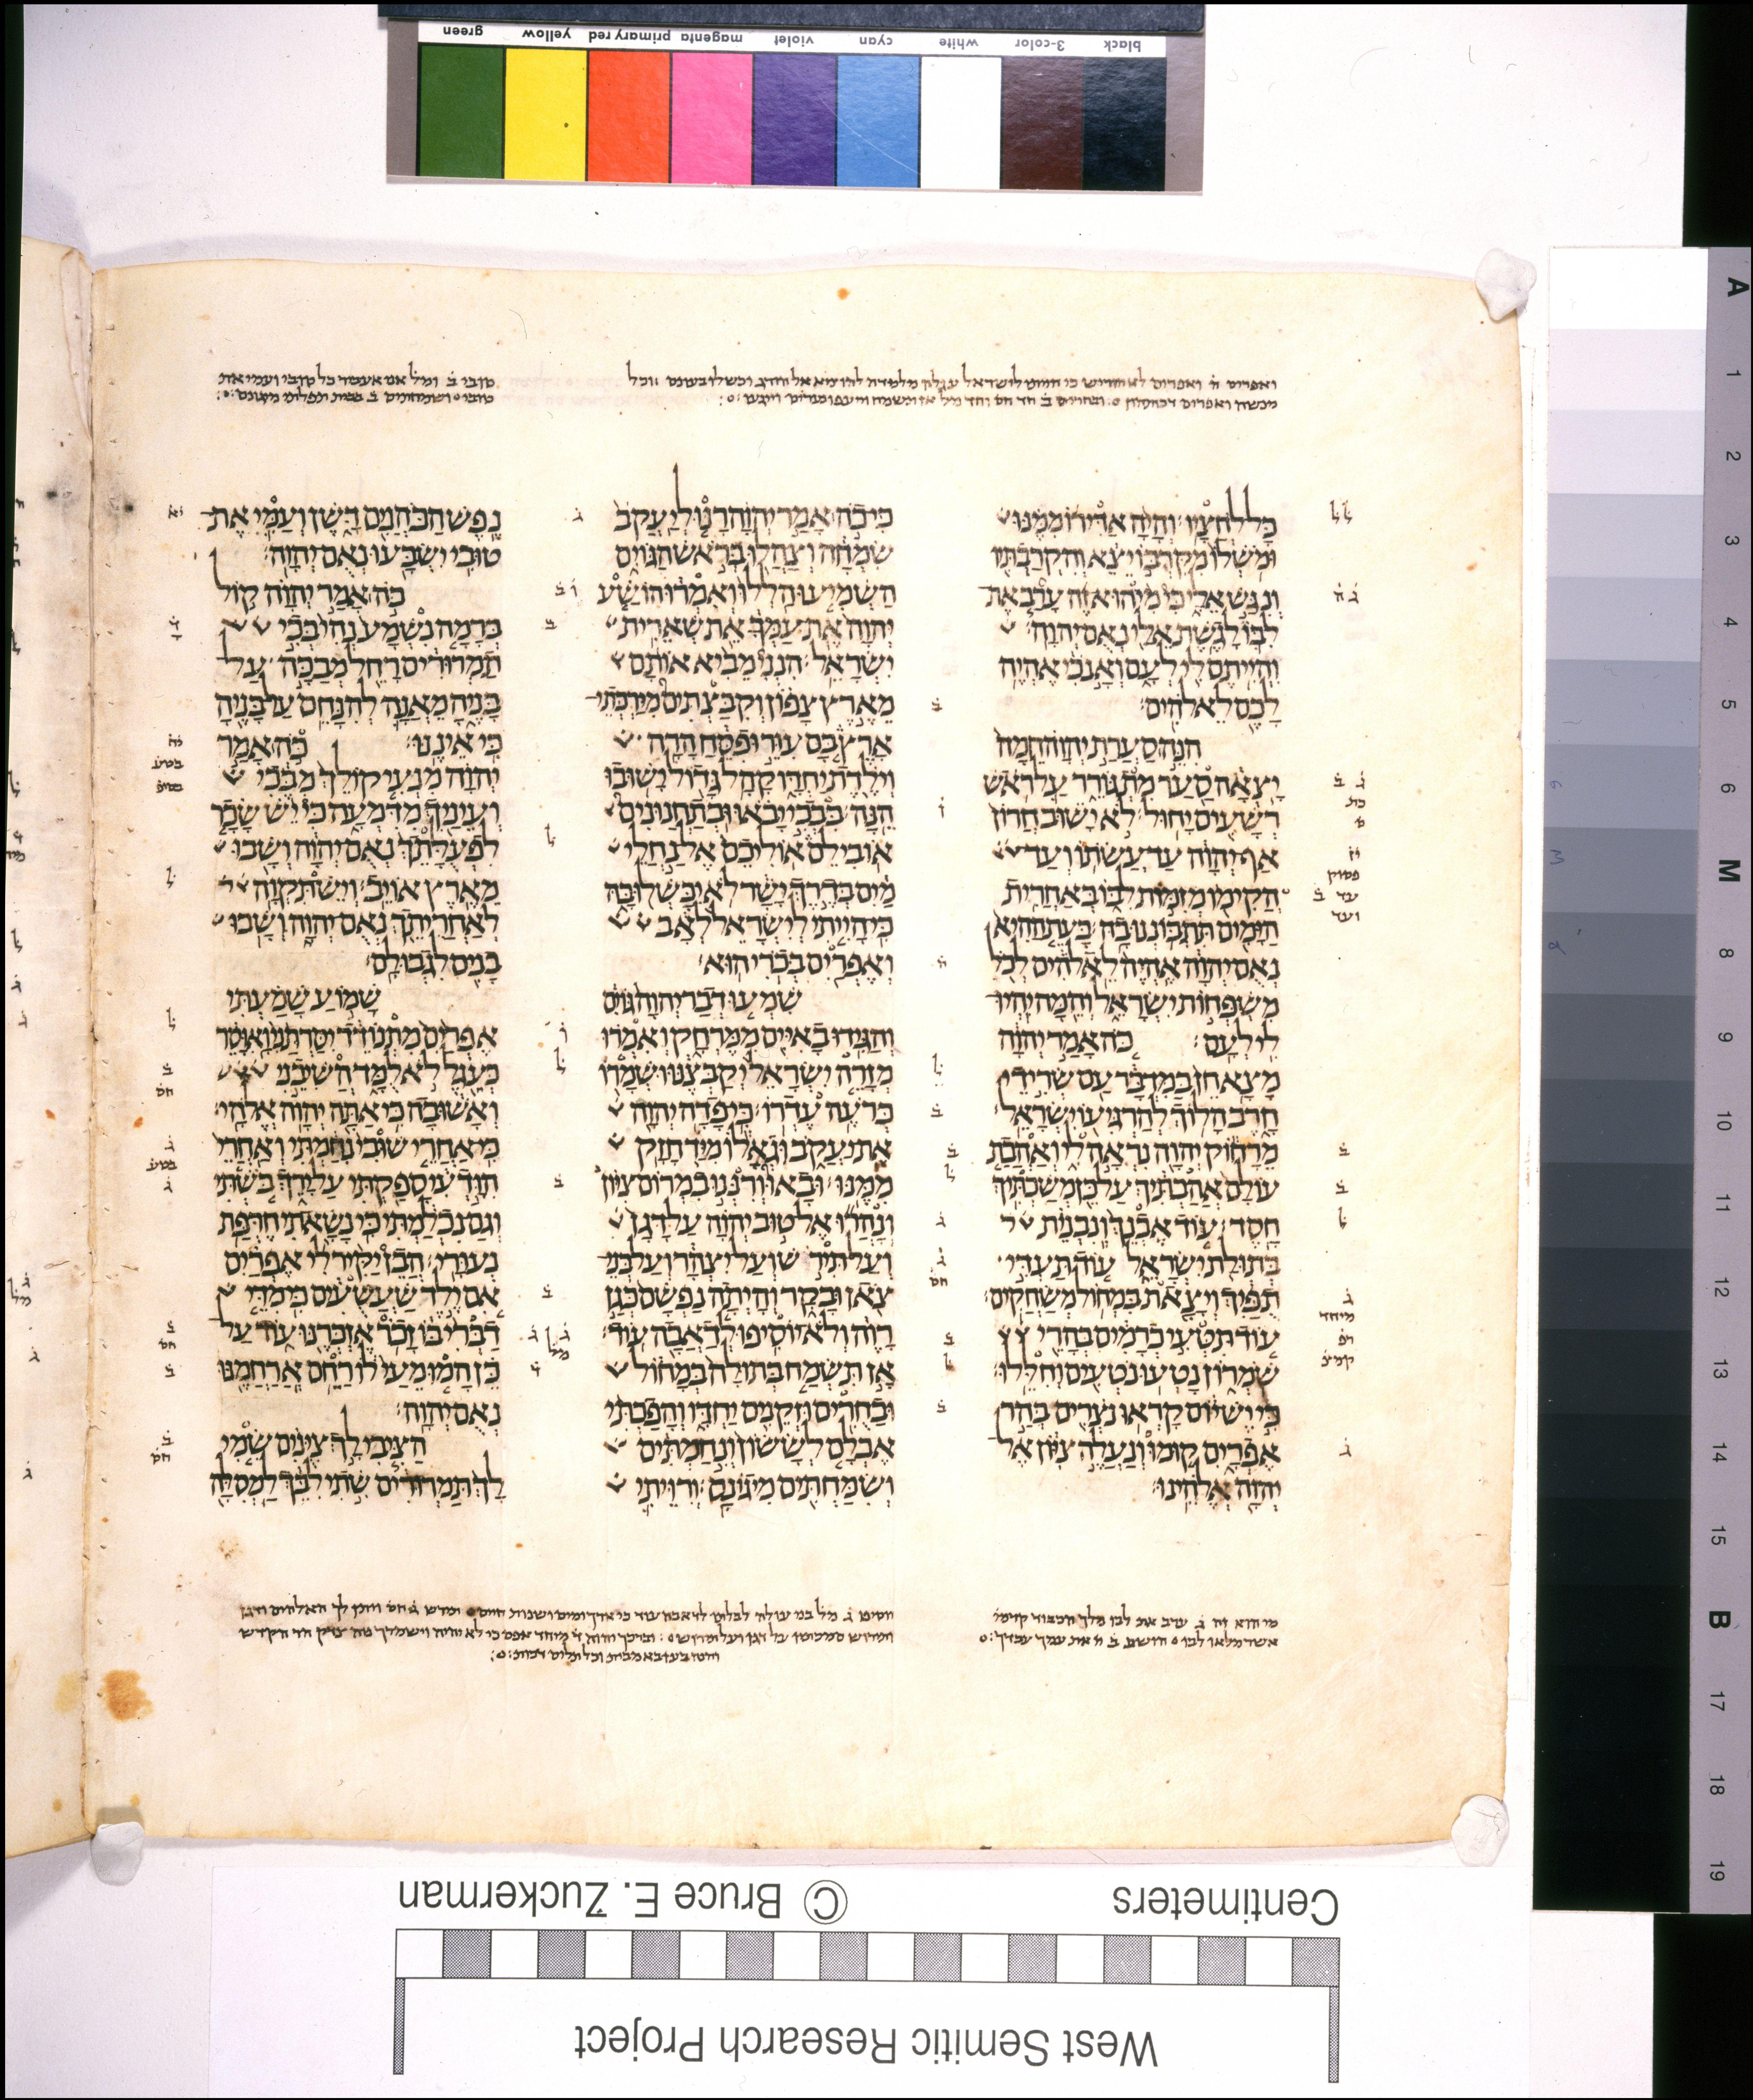 green yellow primary red magenta violet cyan white 3-color black
כל לחציו׃ והיה אדירו ממנו
ומשלו מקרבו יצא והקרבתיו
ונגש אלי כי מי הוא זה ערב את
לבו לגשת אלי נאם יהוה׃
והייתם לי לעם ואנכי אהיה
לכם לאלהים׃
הנה סערת יהוה חמה
יצאה סער מתגורר על ראש
רשעים יחול׃ לא ישוב חרון
אף יהוה עד עשתו ועד
הקימו מזמות לבו באחרית
הימים תתבוננו בה׃ בעת ההיא
נאם יהוה אהיה לאלהים לכל
משפחות ישראל והמה יהיו
לי לעם׃ כה אמר יהוה
מצא חן במדבר עם שרידי
חרב הלוך להרגיעו ישראל׃
מרחוק יהוה נראה לי ואהבת
עולם אהבתיך על כן משכתיך
חסד׃ עוד אבנך ונבנית
בתולת ישראל עוד תעדי
תפיך ויצאת במחול משחקים׃
עוד תטעי כרמים בהרי
שמרון נטעו נטעים וחללו׃
כי יש יום קראו נצרים בהר
אפרים קומו ונעלה ציון אל
יהוה אלהינו׃
כי כה אמר יהוה רנו ליעקב
שמחה וצהלו בראש הגוים
השמיעו הללו ואמרו הושע
יהוה את עמך את שארית
ישראל׃ הנני מביא אותם
מארץ צפון וקבצתים מירכתי
ארץ בם עור ופסח הרה
וילדת יחדו קהל גדול ישובו
הנה׃ בבכי יבאו ובתחנונים
אובילם אוליכם אל נחלי
מים בדרך ישר לא יכשלו בה
כי הייתי לישראל לאב
ואפרים בכרי הוא׃
שמעו דבר יהוה גוים
והגידו באיים ממרחק ואמרו
מזרה ישראל יקבצנו ושמרו
כרעה עדרו׃ כי פדה יהוה
את יעקב וגאלו מיד חזק
ממנו׃ ובאו ורננו במרום ציון
ונהרו אל טוב יהוה על דגן
ועל תירש ועל יצהר ועל בני
צאן ובקר והיתה נפשם כגן
רוה ולא יוסיפו לדאבה עוד׃
אז תשמח בתולה במחול
ובחרים וזקנים יחדו והפכתי
אבלם לששון ונחמתים
ושמחתים מיגונם׃ ורויתי
נפש הכהנים דשן ועמי את
טובי ישבעו נאם יהוה׃
כה אמר יהוה קול
ברמה נשמע נהי בכי
תמרורים רחל מבכה על
בניה מאנה להנחם על בניה
כי איננו׃ כה אמר
יהוה מנעי קולך מבכי
ועיניך מדמעה כי יש שכר
לפעלתך נאם יהוה ושבו
מארץ אויב׃ ויש תקוה
לאחריתך נאם יהוה ושבו
בנים לגבולם׃
שמוע שמעתי
אפרים מתנודד יסרתני ואוסר
כעגל לא למד השיבני
ואשובה כי אתה יהוה אלהי׃
כי אחרי שובי נחמתי ואחרי
הודעי ספקתי על ירך בשתי
וגם נכלמתי כי נשאתי חרפת
נעורי׃ הבן יקיר לי אפרים
אם ילד שעשעים כי מדי
דברי בו זכר אזכרנו עוד על
כן המו מעי לו רחם ארחמנו
נאם יהוה׃
הציבי לך צינים שמי
לך תמרורים שתי לבך למסלה
© Bruce E. Zuckerman
Centimeters
West Semitic Research Project
A 1 2 3 4 5 6 M 8 9 10 11 12 13 14 15 B 17 18 19